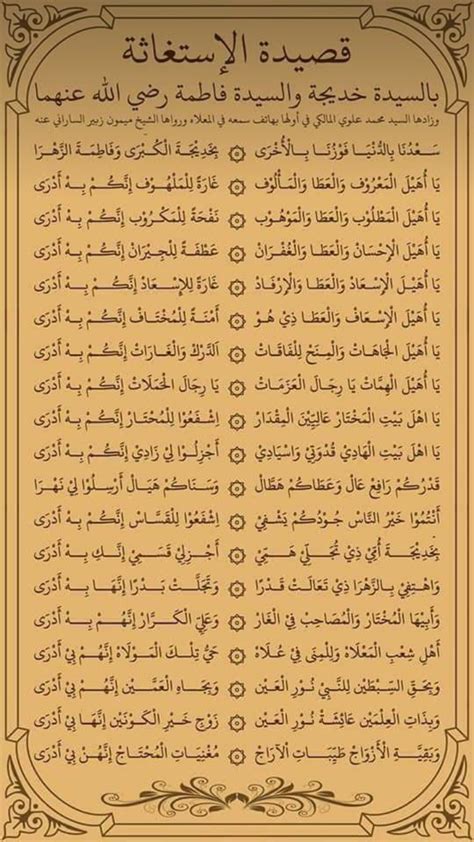 قصيدة الإستغاثة
بالسيدة خديجة والسيدة فاطمة رضي الله عنهما
وزادها السيد محمد علوي المالكي في أولها بهاتف سمعه في المعلاه ورواها الشيخ ميمون زبير الساراني عنه
سَعْدُنَا بِالدُّنْيَا فَوْزُنَا بِالْأُخْرَى ۞ بِخَدِيْجَةَ الْكُبْرَى وَفَاطِمَةَ الزَّهْرَا
يَا أُهَيْلَ الْمَعْرُوْفْ وَالْعَطَا وَالْمَأْلُوْفْ ۞ غَارَةً لِلْمَلْهُوْفْ إِنَّكُمْ بِهْ أَدْرَى
يَا أُهَيْلَ الْمَطْلُوْبْ وَالْعَطَا وَالْمَوْهُوْبْ ۞ نَفْحَةً لِلْمَكْرُوْبْ إِنَّكُمْ بِهْ أَدْرَى
يَا أُهَيْلَ الْإِحْسَانْ وَالْعَطَا وَالْغُفْرَانْ ۞ عَطْفَةً لِلْجِيْرَانْ إِنَّكُمْ بِهْ أَدْرَى
يَا أُهَيْلَ الْإِسْعَادْ وَالْعَطَا وَالْإِرْفَادْ ۞ غَارَةً لِلْإِسْعَادْ إِنَّكُمْ بِهْ أَدْرَى
يَا أُهَيْلَ الْإِسْعَافْ وَالْعَطَا ذِي هُوْ ۞ أَمْنَةً لِلْمُخْتَافْ إِنَّكُمْ بِهْ أَدْرَى
يَا أُهَيْلَ الْجَاهَاتْ وَالْمِنَحْ لِلْفَاقَاتْ ۞ اَلدَّرَكْ وَالْغَارَاتْ إِنَّكُمْ بِهْ أَدْرَى
يَا أُهَيْلَ الْهِمَّاتْ يَا رِجَالَ الْعَزَمَاتْ ۞ يَا رِجَالَ الْحَمَلَاتْ إِنَّكُمْ بِهْ أَدْرَى
يَا اهْلَ بَيْتِ الْمُخْتَارْ عَالِيَيْنَ الْمِقْدَارْ ۞ اِشْفَعُوْا لِلْمُحْتَارْ إِنَّكُمْ بِهْ أَدْرَى
يَا اهْلَ بَيْتِ الْهَادِيْ قُدْوَتِيْ وَاسْيَادِيْ ۞ أَجْزِلُوْا لِيْ زَادِيْ إِنَّكُمْ بِهْ أَدْرَى
قَدْرُكُمْ رَافِعْ عَالْ وَعَطَاكُمْ هَطَّالْ ۞ وَسَنَاكُمْ هَيَالْ أَرْسِلُوْا لِيْ نَهْرَا
أَنْتُمُوْا خَيْرُ النَّاسْ جُوْدُكُمْ يَشْفِيْ ۞ اِشْفَعُوْا لِلْقَسَّاسْ إِنَّكُمْ بِهْ أَدْرَى
بِخَدِيْجَةْ أُمِّيْ ذِيْ تُجَلِّيْ هَمِّيْ ۞ أَجْزِلِيْ قَسْمِيْ إِنَّكِ بِهْ أَدْرَى
وَاهْتِفِيْ بِالزَّهْرَا ذِيْ تَعَالَتْ قَدْرًا ۞ وَتَجَلَّتْ بَدْرًا إِنَّهَا بِهْ أَدْرَى
وَأَبِيْهَا الْمُخْتَارْ وَالْمُصَاحِبْ فِي الْغَارْ ۞ وَعَلِيِّ الْكَرَّارْ إِنَّهُمْ بِهْ أَدْرَى
أَهْلِ شِعْبِ الْمَعْلَاهْ وَلِلْمِنَى فِيْ عُلَاهْ ۞ حَيُّ تِلْكَ الْمَوْلَاهْ إِنَّهُمْ بِيْ أَدْرَى
وَبِحَقِّ السِّبْطَيْنْ لِلنَّبِيْ نُوْرِ الْعَيْنْ ۞ وَبِجَاهِ الْعَمَّيْنْ إِنَّهُمْ بِيْ أَدْرَى
وَبِذَاتِ الْعِلْمَيْنْ عَائِشَةْ نُوْرُ الْعَيْنْ ۞ زَوْجِ خَيْرِ الْكَوْنَيْنْ إِنَّهَا بِيْ أَدْرَى
وَبَقِيَّةِ الْأَزْوَاجْ طَيِّبَاتِ الْآرَاجْ ۞ مُغْنِيَاتِ الْمُحْتَاجْ إِنَّهُنْ بِيْ أَدْرَى